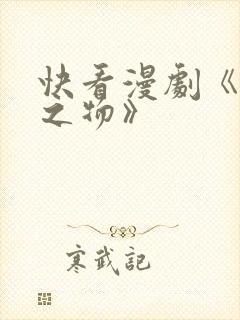 快看漫劇《
之物》
寒武記